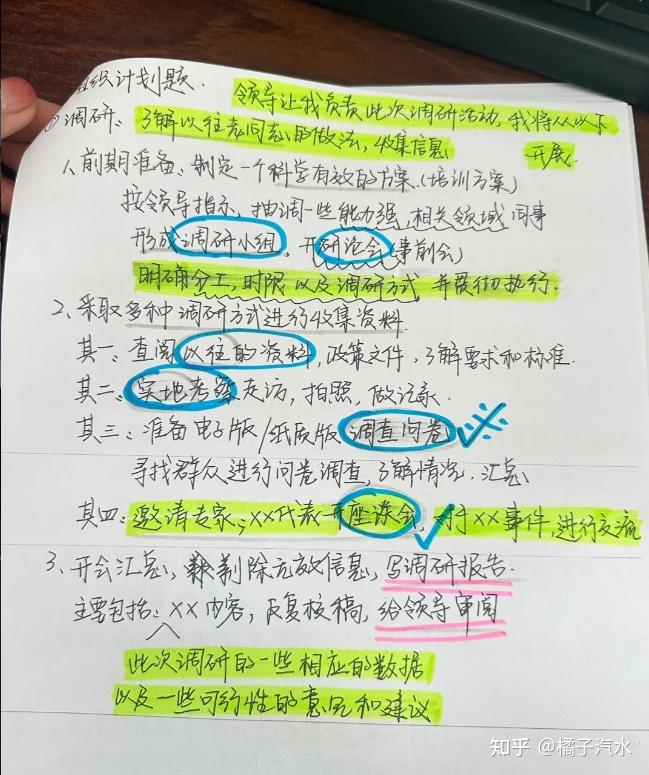 组织计划题.
领导让我负责此次调研活动,我将从以下
开展.
①调研: 了解以往老同志的做法,收集信息
1、前期准备、制定一个科学有效的方案.(培训方案)
按领导指示,抽调一些能力强,相关领域同事
形成调研小组,开研论会(事前会)
明确分工,时限以及调研方式 并贯彻执行.
2、采取多种调研方式进行收集资料.
其一、查阅以往的资料,政策文件,了解要求和标准.
其二、实地考察走访,拍照,做记录.
其三:准备电子版/纸质版调查问卷
寻找群众进行问卷调查,了解情况、汇总、
其四:邀请专家,XX代表开座谈会,对于XX事件,进行交流
3、开会汇总,剔除无效信息,写调研报告.
主要包括:XX内容,反复核稿,给领导审阅
此次调研的一些相应的数据
以及一些可行性的意见和建议
知乎 @橘子汽水